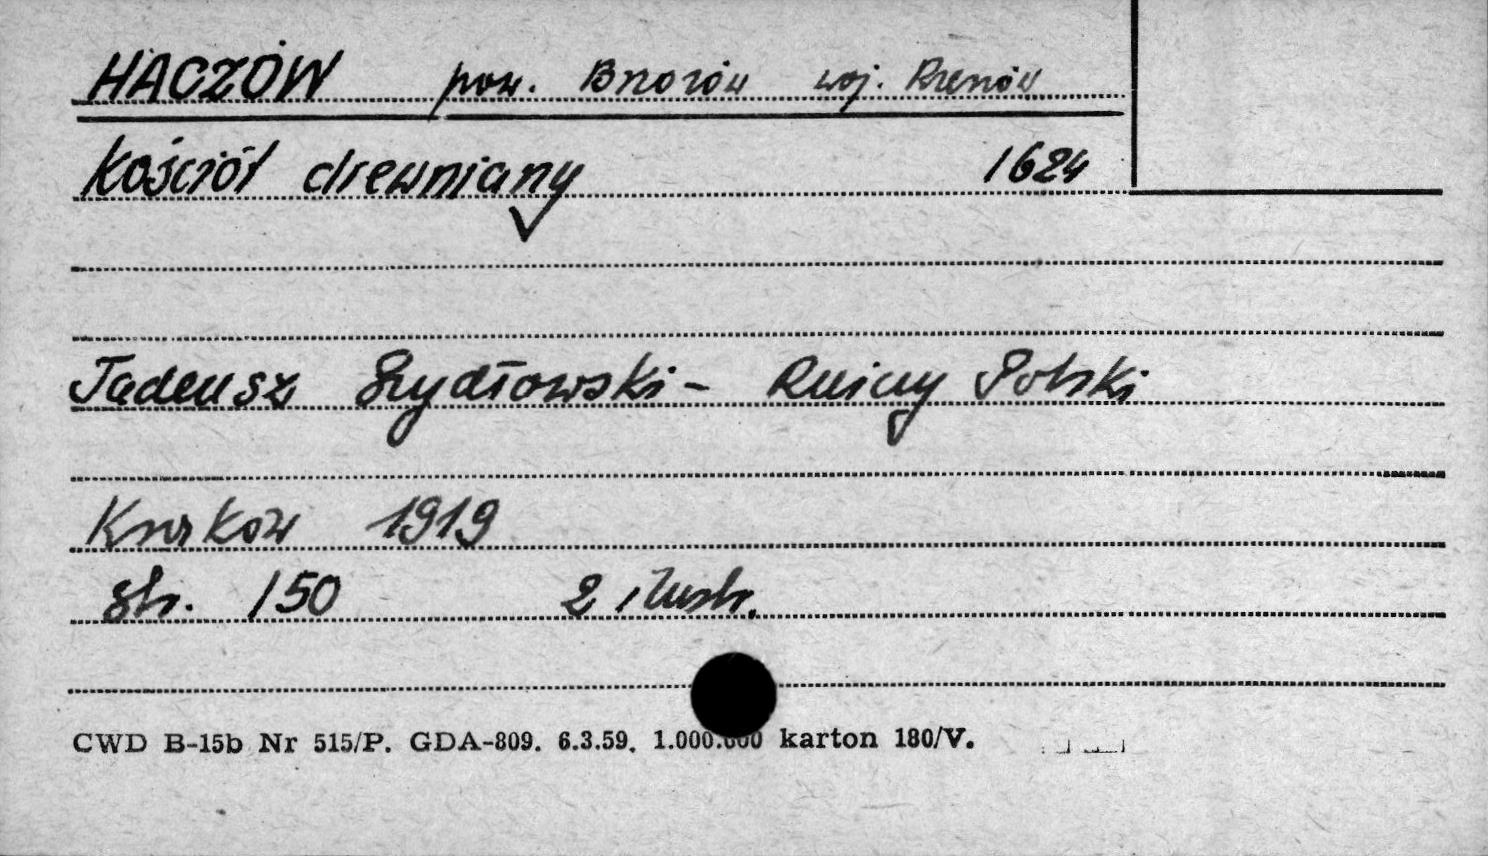 HACZÓW pow. Brzozów woj. Rzeszów
Kościół drewniany 1624
Tadeusz Szydłowski - Ruiny Polski
Kraków 1919
str. 150 2 ilustr.
CWD B-15b Nr 515/P. GDA-809. 6.3.59. 1.000.000 karton 180/V.